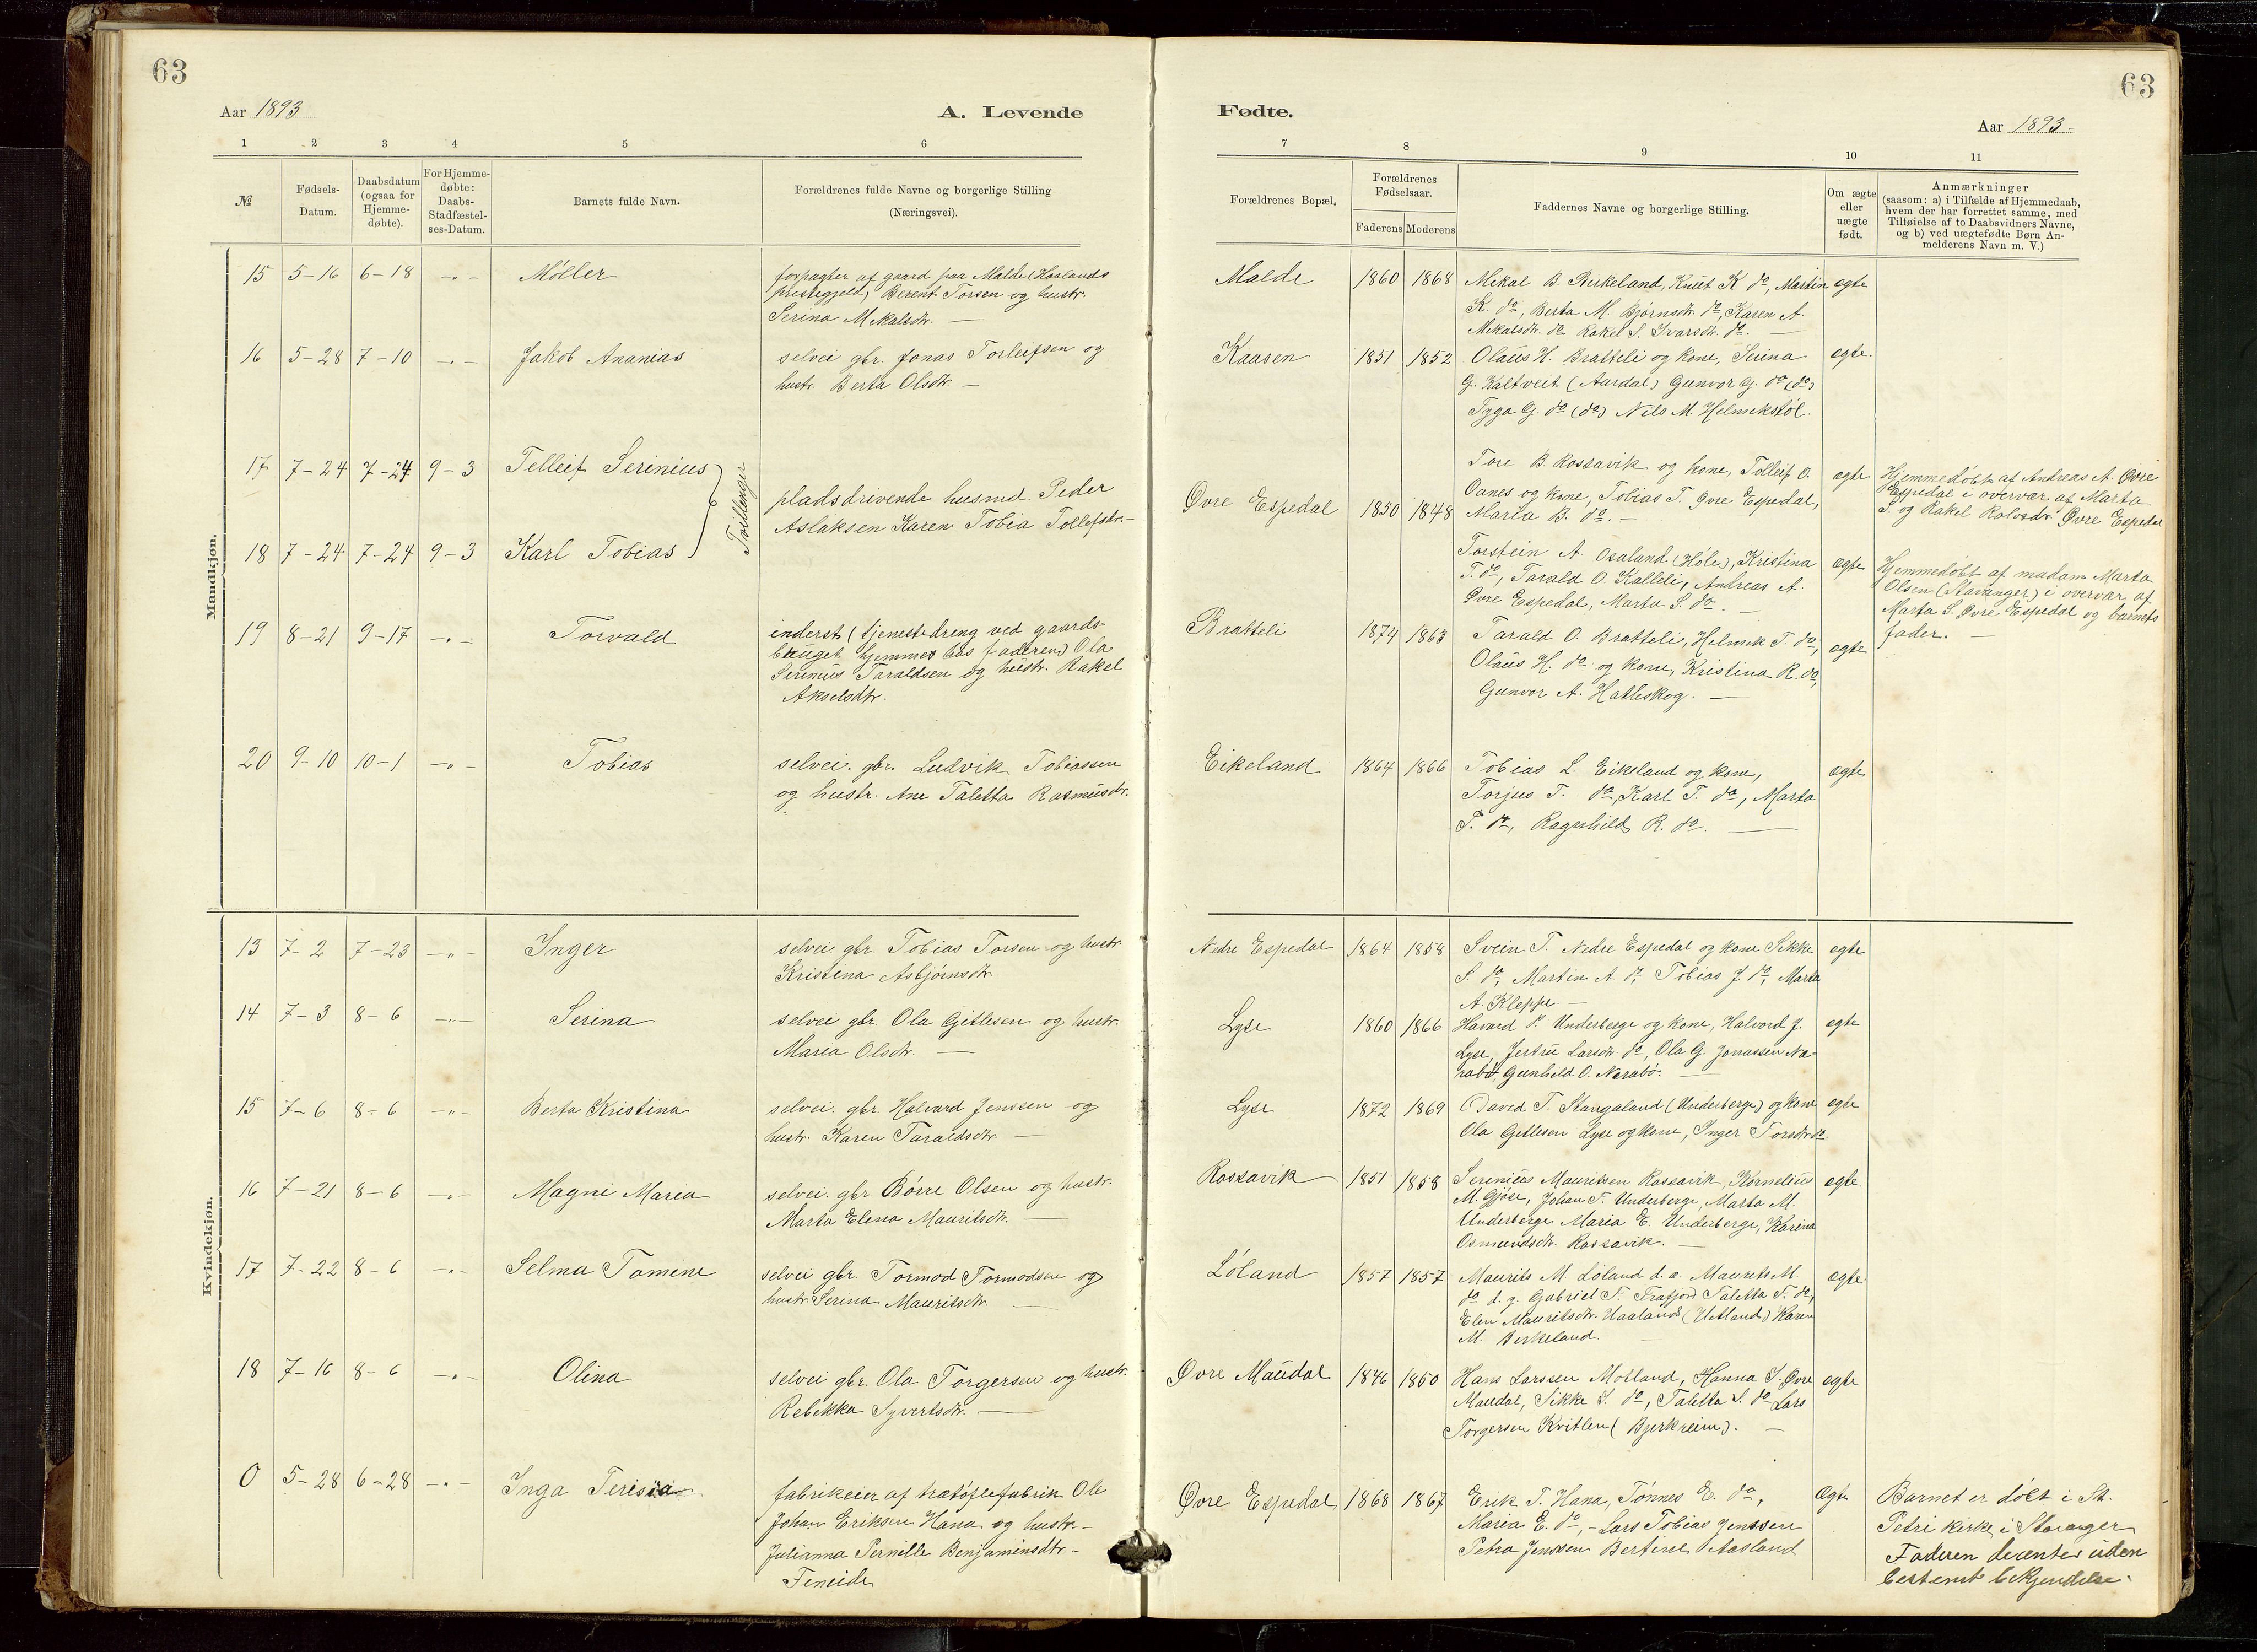 63
63
Aar 1893
A. Levende
Fødte.
Aar 1893.
1 2 3 4 5 6
7 8 9 10 11
№
Fødsels-
Datum.
Daabsdatum
(ogsaa for
Hjemme-
døbte).
For Hjemme-
døbte:
Daabs-
Stadfæstel-
ses-Datum.
Barnets fulde Navn.
Forældrenes fulde Navne og borgerlige Stilling
(Næringsvei).
Forældrenes Bopæl.
Forældrenes
Fødselsaar.
Faderens Moderens
Faddernes Navne og borgerlige Stilling.
Om ægte
eller
uægte
født.
Anmærkninger
(saasom: a) i Tilfælde af Hjemmedaab,
hvem der har forrettet samme, med
Tilføielse af to Daabsvidners Navne,
og b) ved uægtefødte Børn An-
melderens Navn m. V.)
Mandkjøn.
15 5-16 6-18 -"- Møller
forpagter af gaard paa Malde (Haalands
prestegjeld) Berent Torsen og hustr.
Serina Mikalsdtr. —
Malde 1860 1868
Mikal B. Birkeland, Knut K do, Martin
K. do, Berta M. Bjørnsdtr. do, Karen A.
Mikalsdtr. do Rakel S. Ivarsdtr. do. —
egte
16 5-28 7-10 -"- Jakob Ananias
selvei gbr. Jonas Torleifsen og
hustr. Berta Olsdtr. —
Kaasen 1851 1852
Olaus H. Bratteli og kone, Serina
G. Kaltveit (Aardal) Gunvor G. do (do)
Tyga G. do (do) Nils M. Helmikstøl.
egte.
17 7-24 7-24 9-3 Telleif Serinius
18 7-24 7-24 9-3 Karl Tobias
Tvillinger
pladsdrivende husmd. Peder
Aslaksen Karen Tobia Tollefsdtr. -
Øvre Espedal 1850 1848
Tore B. Rossavik og kone, Tolleif O.
Oanes og kone, Tobias T. Øvre Espedal,
Marta B. do. —
egte
Hjemmedøbt af Andreas A. Øvre
Espedal i overvær af Marta
S. og Rakel Rolvsdtr. Øvre Espedal
Torstein A. Osaland (Høle), Kristina
T. do, Tarald O. Kalleli, Andreas A.
Øvre Espedal, Marta S. do. —
egte
Hjemmedøbt af madam Marta
Olsen (Stavanger) i overvær af
Marta S. Øvre Espedal og barnets
fader. —
19 8-21 9-17 -"- Torvald
inderst (tjenestedreng ved gaards-
bruget hjemme hos faderen) Ola
Serinius Taraldsen og hustr. Rakel
Akselsdtr.
Bratteli 1874 1863
Tarald O. Bratteli, Helmik T. do,
Olaus H. do og kone, Kristina R. do,
Gunvor A. Hatleskog. —
egte
20 9-10 10-1 -"- Tobias
selvei. gbr. Ludvik Tobiassen
og hustr. Ane Taletta Rasmusdtr.
Eikeland 1864 1866
Tobias L. Eikeland og kone,
Torjus T. do, Karl T. do, Marta
T. do, Ragnhild R. do. —
egte
Kvindekjøn.
13 7-2 7-23 -"- Inger
selvei gbr. Tobias Torsen og hustr.
Kristina Asbjørnsdtr.
Nedre Espedal 1864 1858
Svein T. Nedre Espedal og kone Sikke
S. do, Martin A. do, Tobias J. do, Marta
A. Kleppe. —
egte
14 7-3 8-6 -"- Serina
selvei gbr. Ola Gitlesen og hustr.
Maria Olsdtr. —
Lyse 1860 1866
Havard P. Underberge og kone, Halvord J.
Lyse, Jertru Larsdtr. do, Ola G. Jonassen Ne-
rabø, Gunhild O. Nerabø. —
egte
15 7-6 8-6 -"- Berta Kristina
selvei. gbr. Halvard Jenssen og
hustr. Karen Taraldsdtr. —
Lyse 1872 1869
David T. Stangaland (Underberge) og kone
Ola Gitlesen Lyse og kone, Inger Torsdtr. do.
egte
16 7-21 8-6 -"- Magni Maria
selvei. gbr. Børre Olsen og hustr.
Marta Elena Mauritsdtr. —
Rossavik 1851 1858
Serenius Mauritsen Rossavik, Kornelius
M. Gjøse, Johan T. Underberge, Marta M.
Underberge Maria E. Underberge, Karina
Osmundsdtr. Rossavik. —
egte.
17 7-22 8-6 -"- Selma Tomine
selvei gbr. Tormod Tormodsen og
hustr. Serina Mauritsdtr. —
Løland 1857 1857
Maurits M. Løland d. e. Maurits M.
do d. y. Gabriel T. Frafjord Taletta T. do,
Elen Mauritsdtr. Haaland (Hetland) Karen
M. Birkeland.
egte.
18 7-16 8-6 -"- Olina
selvei gbr. Ola Torgersen og hustr.
Rebekka Syvertsdtr. —
Øvre Maudal 1846 1850
Hans Larssen Motland, Hanna S. Øvre
Maudal, Sikke S. do, Taletta S. do Lars
Torgersen Kvitlen (Bjerkreim). —
egte
0 5-28 6-28 -"- Inga Terisia
fabrikeier af trætøflefabrik Ole
Johan Eriksen Hana og hustr. -
Julianna Pernille Benjaminsdtr -
Øvre Espedal 1868 1867
Erik T. Hana, Tønnes E. do,
Maria E. do, - Lars Tobias Jenssen
Petra Jenssen Bertine Aasland
Egte
Barnet er døbt i St.
Petri kirke i Stavanger
Faderen decenter uden
bestemt bekjendelse.